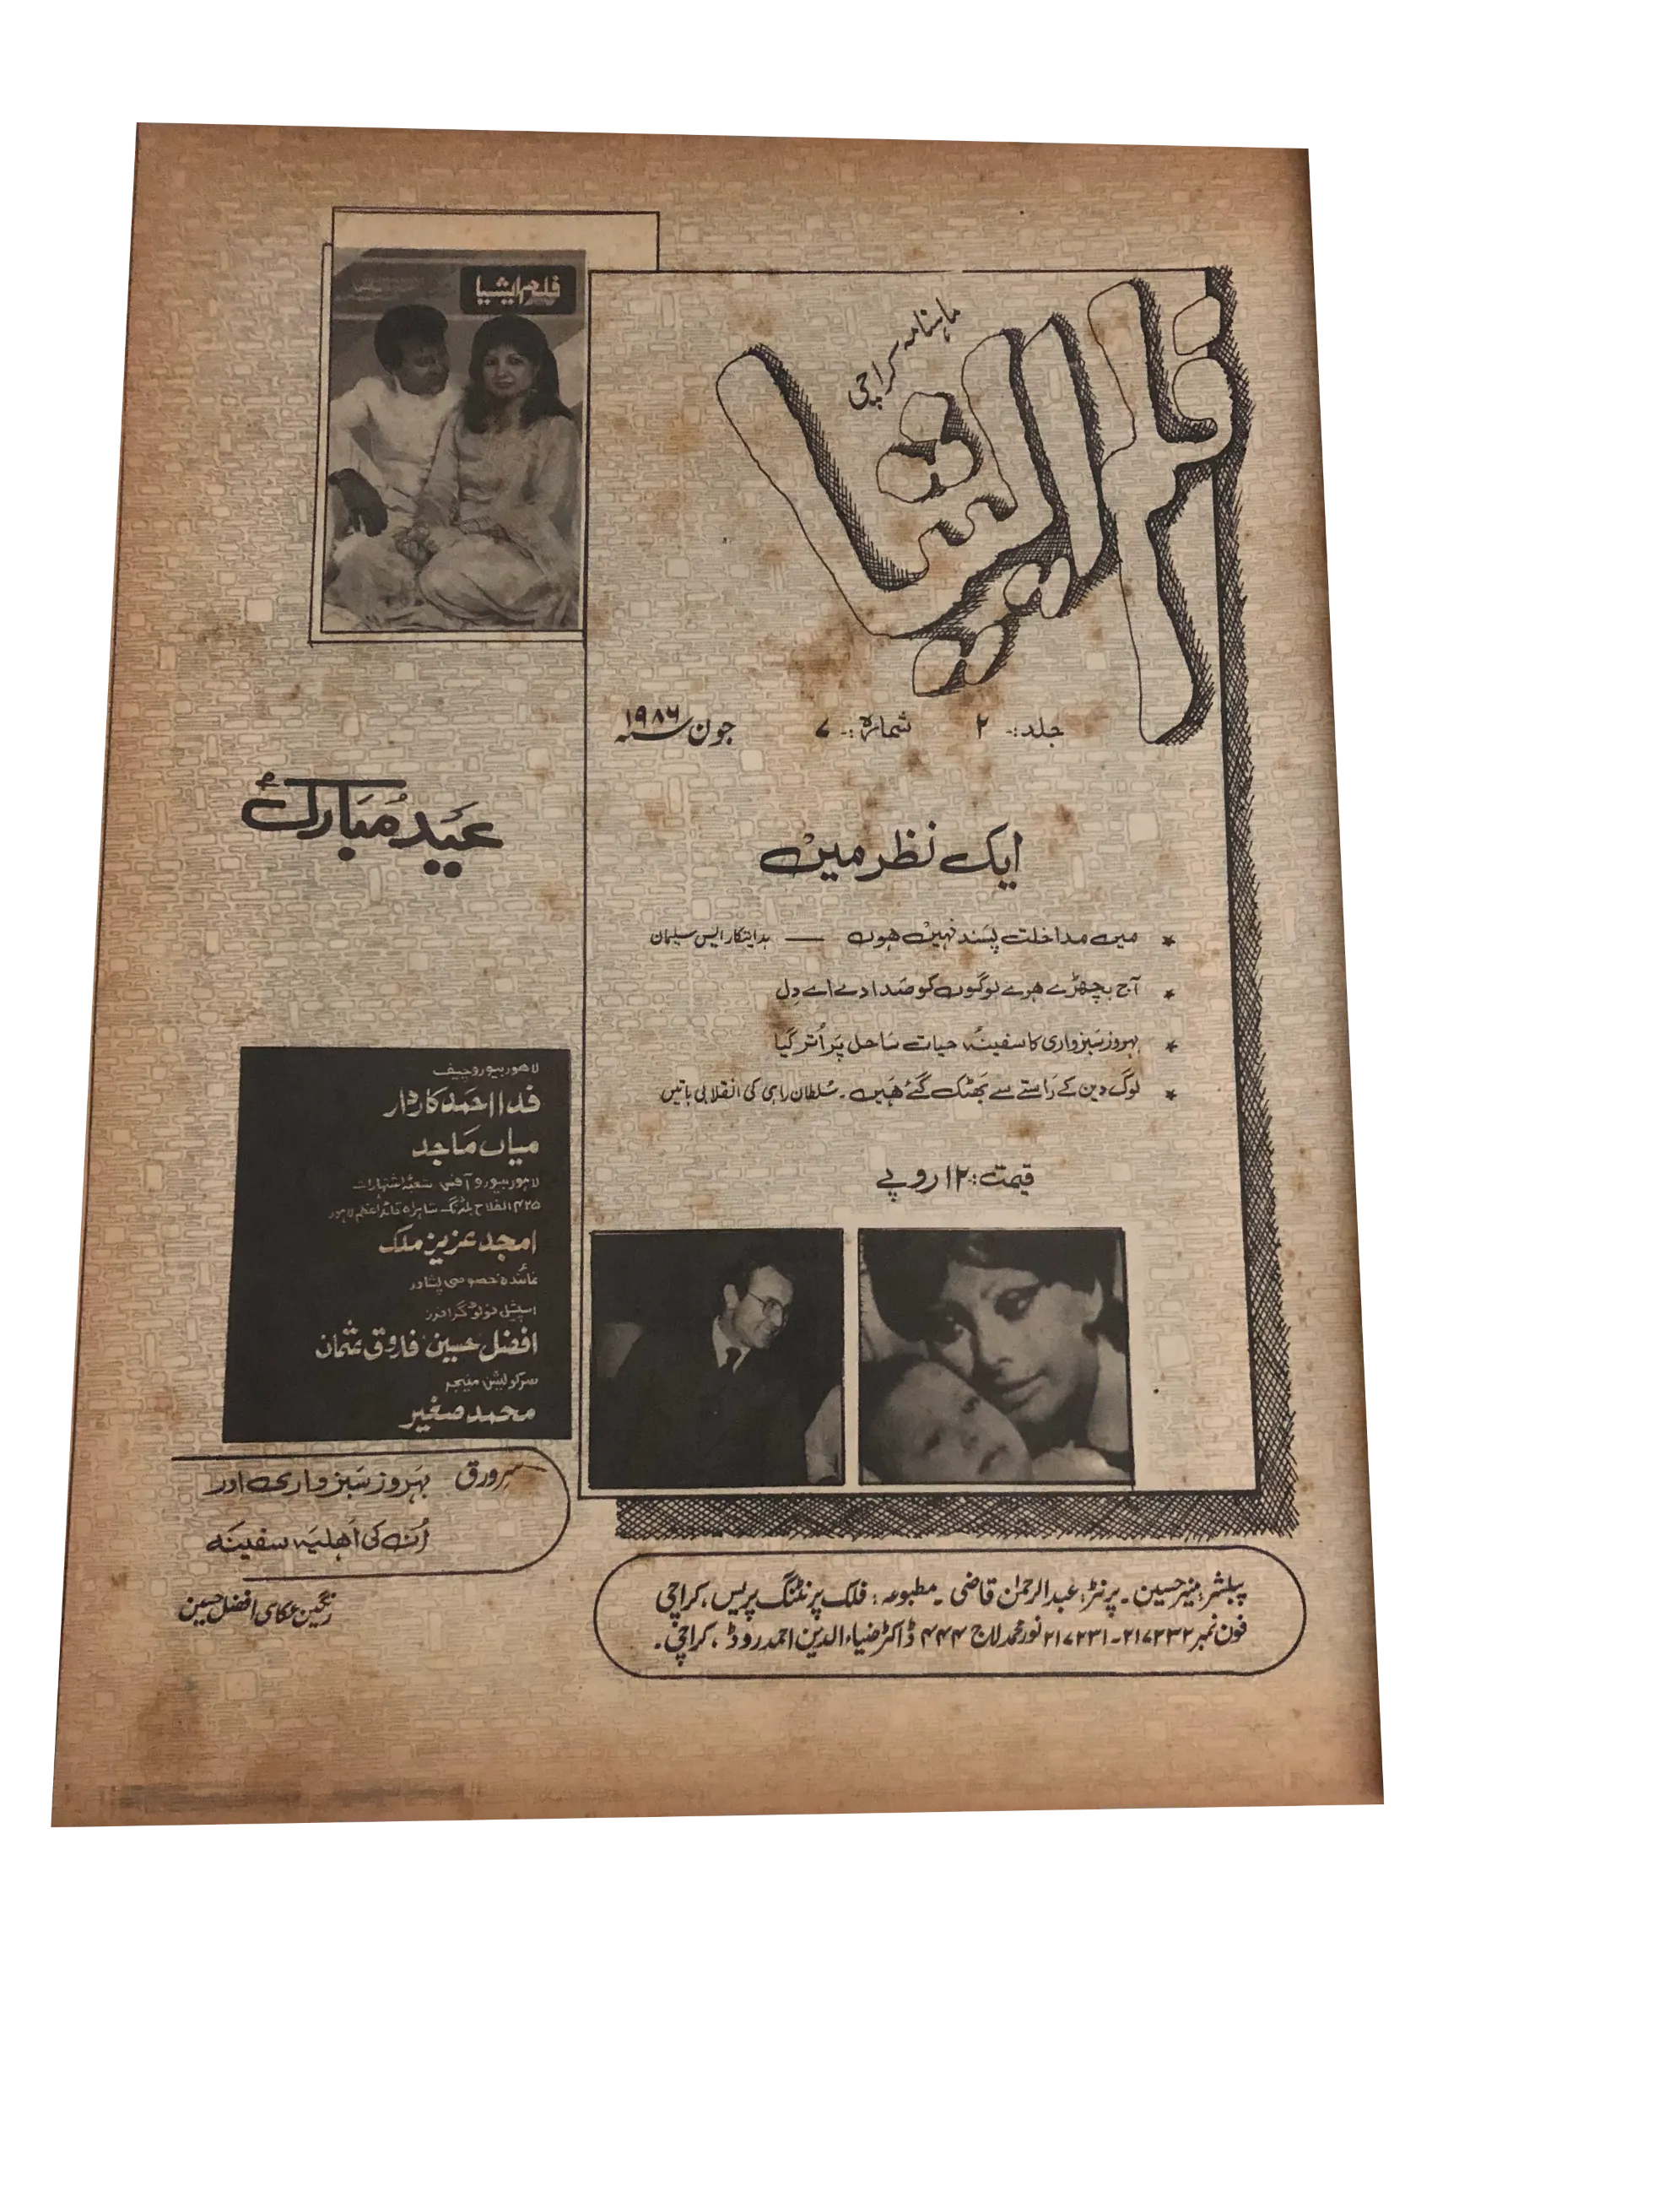 ماہنامہ کراچی
فلم ایشیا
جلد:۔ ۲ شمارہ:۔ ۷ جون سنہ ۱۹۸۶
ایک نظر میں
★ میں مداخلت پسند نہیں ہوں — ہدایتکار ایس سلیمان
★ آج بچھڑے ہوے لوگوں کو صدا دے اے دِل
★ بہروز سَبزواری کا سفینۂ حیات سَاحل پَر اُتر گیا
★ لوگ دین کے رَاستے سے بَھٹک گئے ھَیں۔ سُلطان راہی کی انقلابی باتیں
قیمت:۔ ۱۲ روپے
پبلشر: منیر حسین۔ پرنٹر: عبدالرحمٰن قاضی۔ مطبوعہ: فلک پرنٹنگ پریس، کراچی
فون نمبر ۲۱۷۲۳۲۔۲۱۷۲۳۱ نور محمد لاج ۴۴۴ ڈاکٹر ضیاء الدین احمد روڈ، کراچی۔
فلم ایشیا
عَید مُبَارک
لاھور بیورو چیف
فدا احمَد کاردار
میاں مَاجد
لاہور بیورو آفس شعبۂ اشتہارات
۴۲۵ الفلاح بلڈنگ شاہراہ قائد اعظم لاہور
امجد عزیز ملک
نمائندہ خصوصی پشاور
اسپیشل فوٹو گرافرز
افضل حسین فاروق عثمان
سرکولیشن منیجر
محمد صغیر
سرورق بَہروز سَبزواری اور
اُن کی اَھلیَہ سفینَہ
رنگین عکاسی افضل حسین